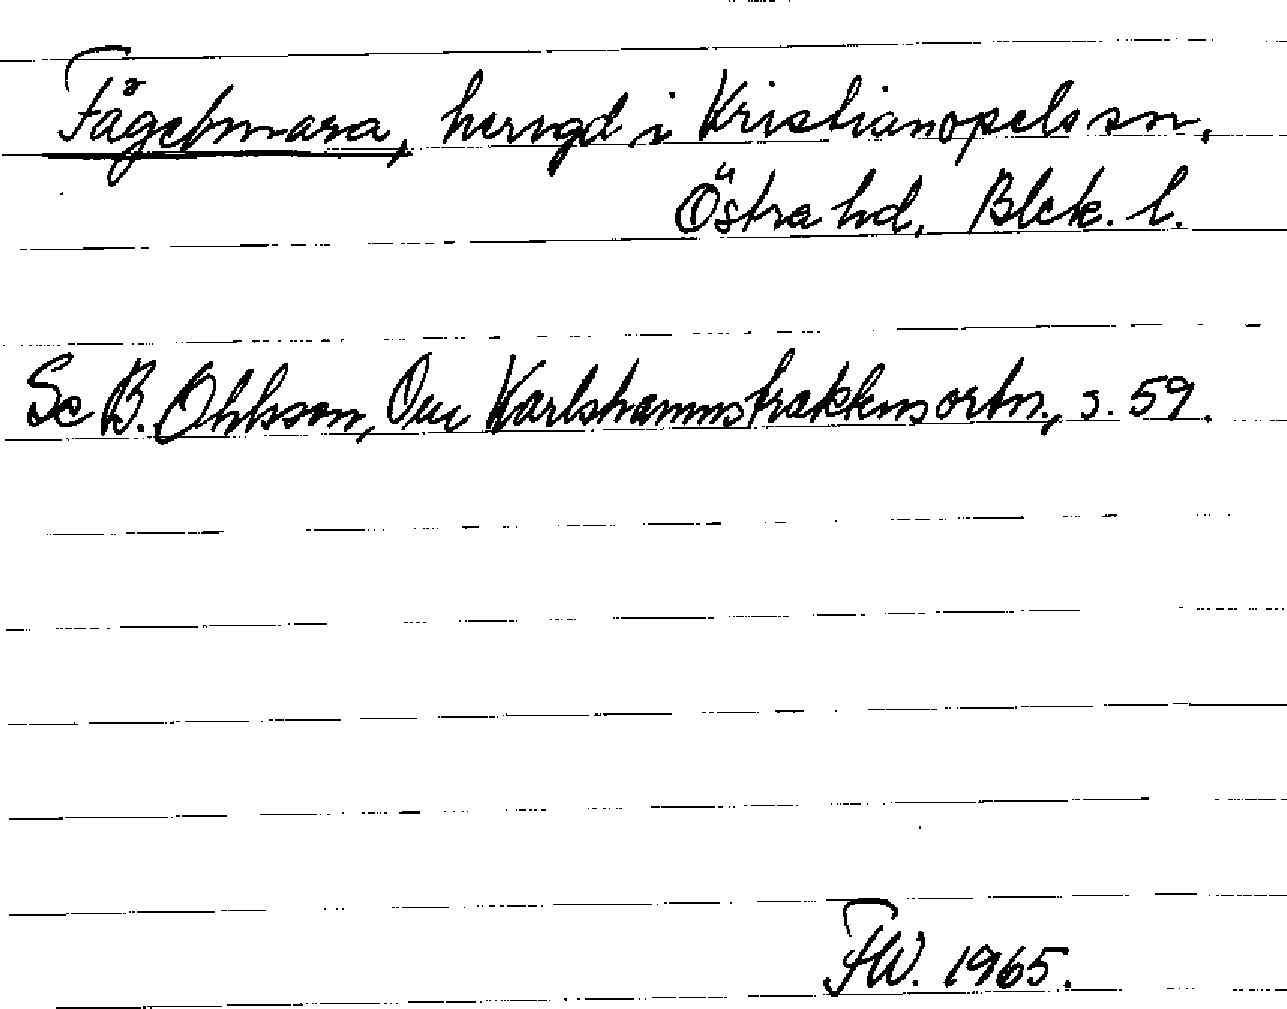 Fågelmara, herrgd i Kristianopels sn,
Östra hd, Blek. l.
Se B. Ohlsson, Om Karlshamnstraktens ortn., s. 59.
FW. 1965.